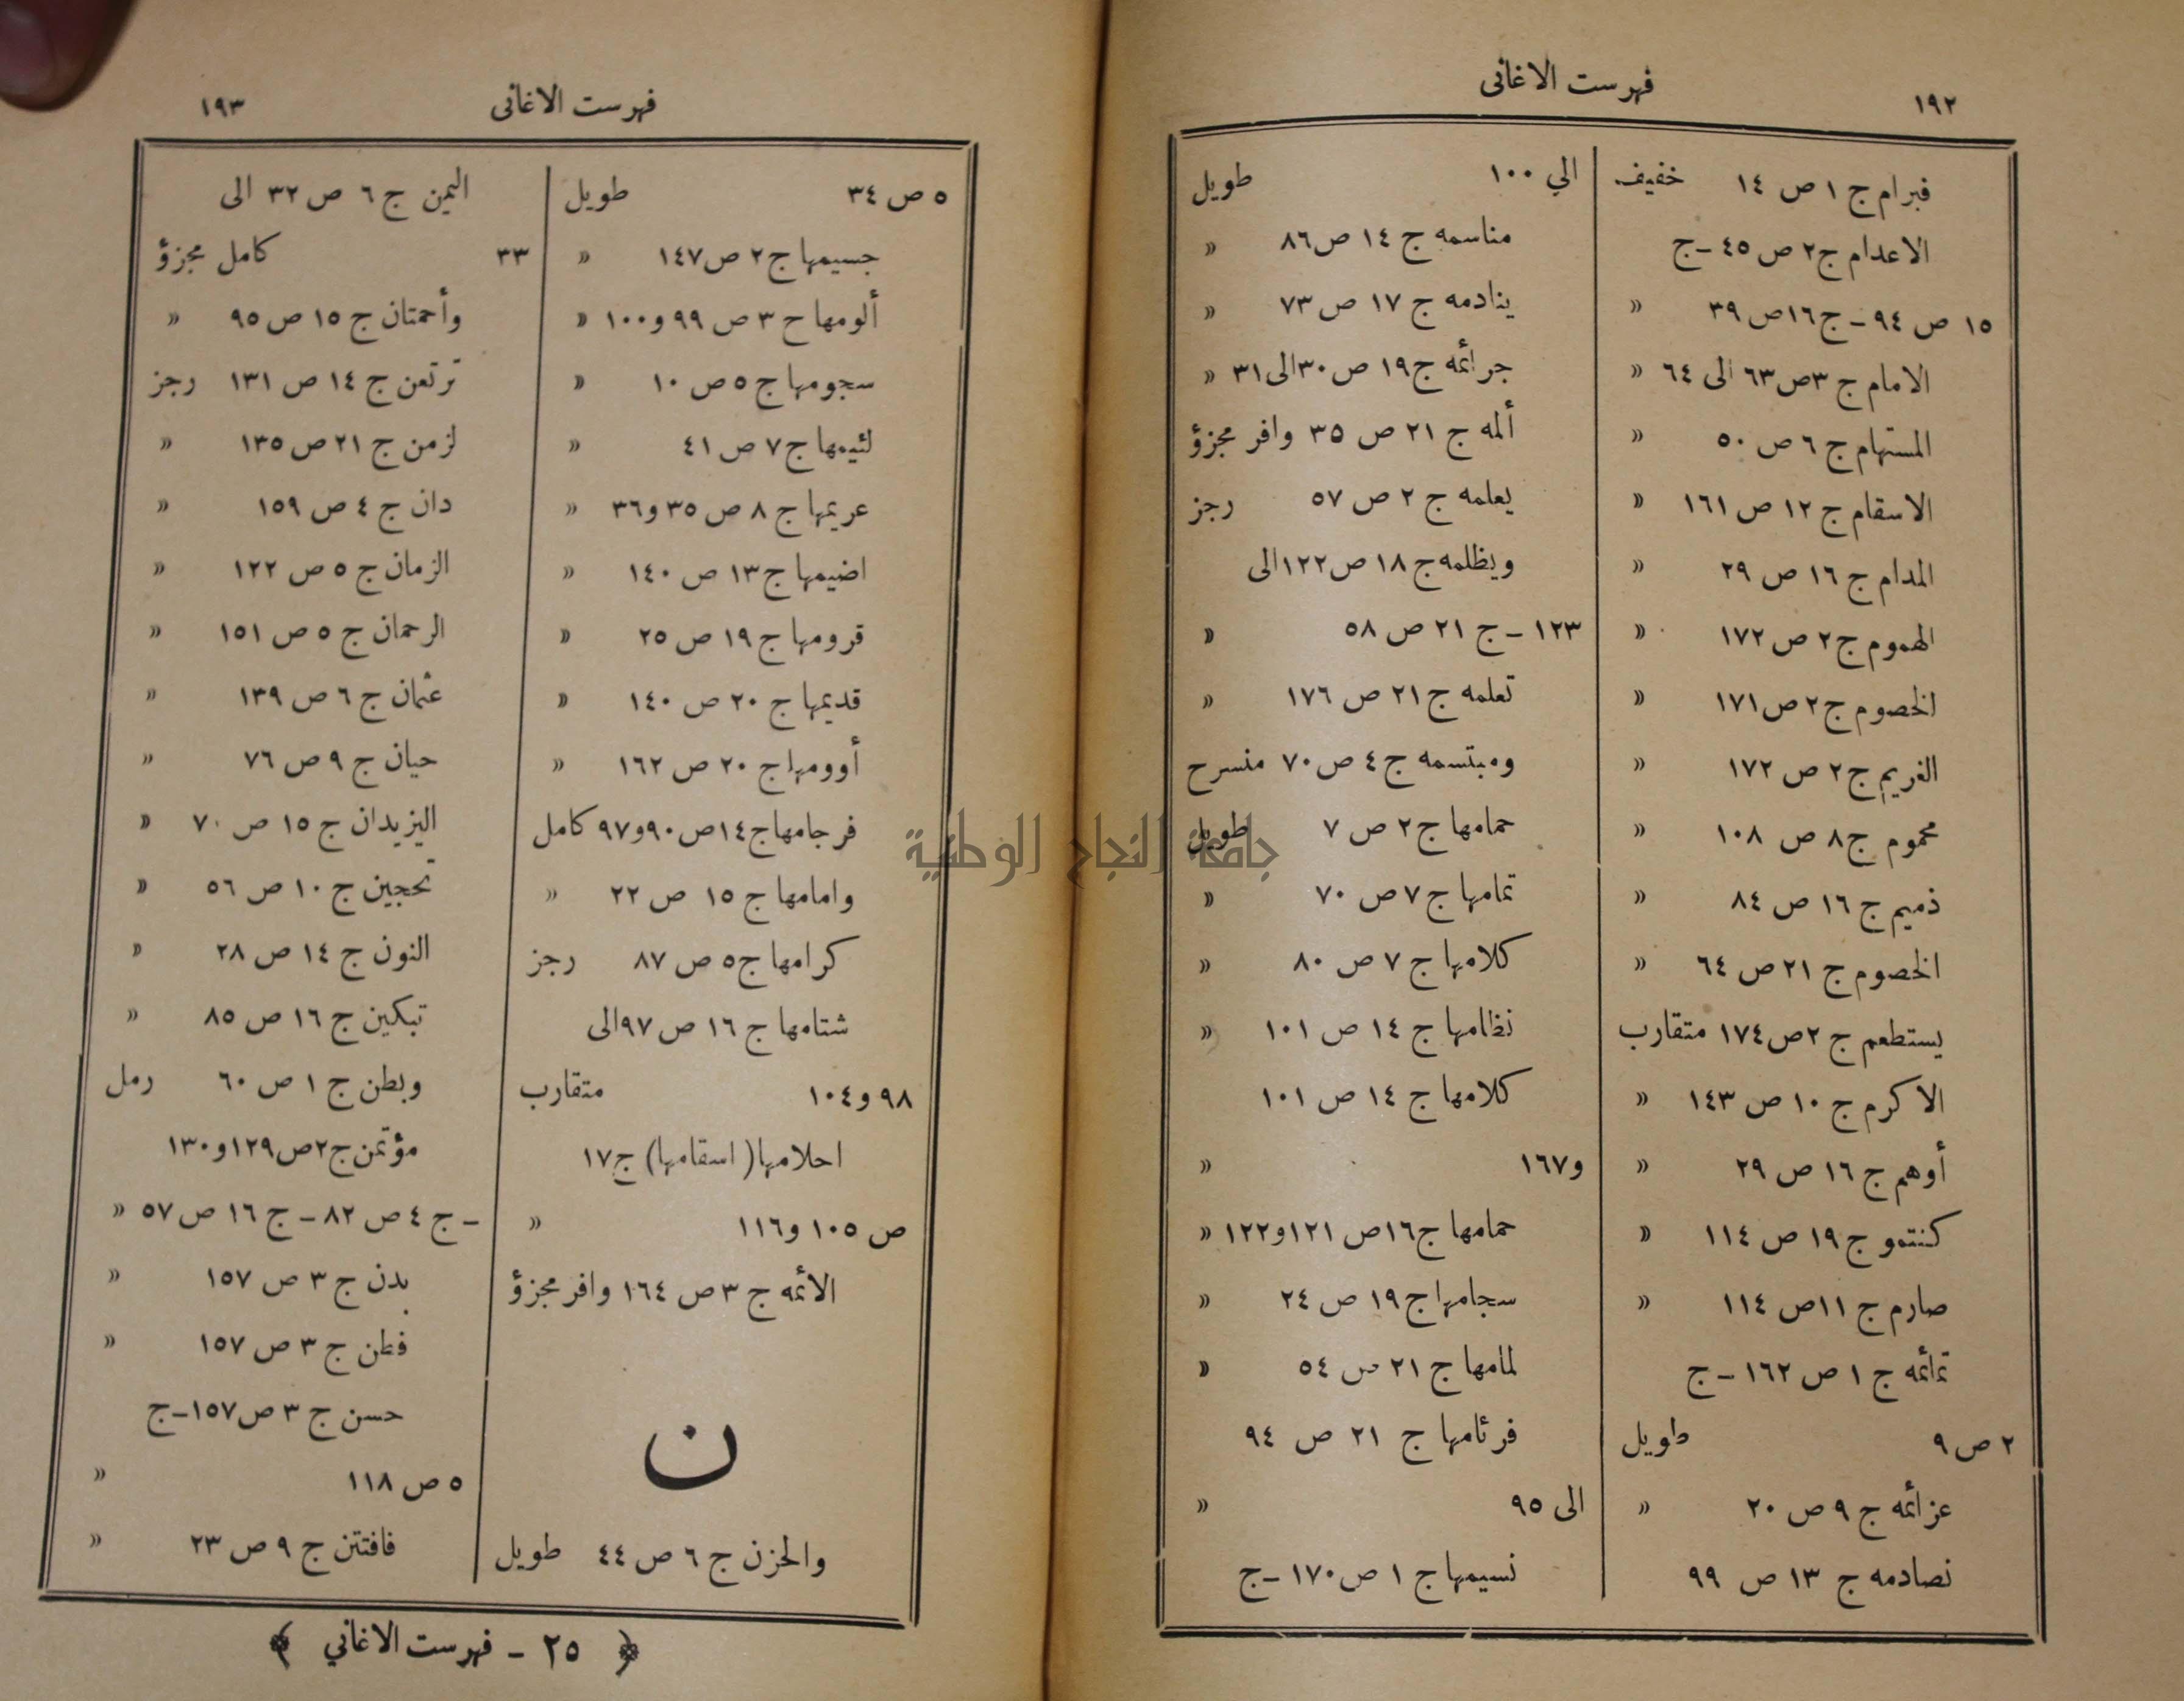 ١٩٢
فهرست الاغانى
فبرام ج ١ ص ١٤ خفيف
الاعدام ج٢ ص ٤٥ -ج
١٥ ص ٩٤ - ج١٦ص ٣٩ «
الامام ج ٣ص٦٣ الى ٦٤ «
المستهام ج ٦ ص ٥٠ «
الاسقام ج ١٢ ص ١٦١ «
المدام ج ١٦ ص ٢٩ «
الهموم ج٢ ص ١٧٢ «
الخصوم ج٢ ص١٧١ «
الغريم ج٢ ص ١٧٢ «
محموم ج٨ ص ١٠٨ «
ذميم ج ١٦ ص ٨٤ «
الخصوم ج ٢١ ص ٦٤ «
يستطعم ج ٢ص١٧٤ متقارب
الاكرم ج ١٠ ص ١٤٣ «
أوهم ج ١٦ ص ٢٩ «
كنتمو ج ١٩ ص ١١٤ «
صارم ج ١١ص ١١٤ «
تمائمه ج ١ ص ١٦٢ -ج
٢ ص ٩ طويل
عزائمه ج ٩ ص ٢٠ «
نصادمه ج ١٣ ص ٩٩
الي ١٠٠ طويل
مناسمه ج ١٤ ص٨٦ «
ينادمه ج ١٧ ص ٧٣ «
جرائمه ج١٩ ص٣٠الى٣١ «
ألمه ج ٢١ ص ٣٥ وافر مجزؤ
يعلمه ج ٢ ص ٥٧ رجز
ويظلمه ج ١٨ ص١٢٢الى
١٢٣ - ج ٢١ ص ٥٨ «
تعلمه ج ٢١ ص ١٧٦ «
ومبتسمه ج ٤ ص٧٠ منسرح
حمامها ج ٢ ص ٧ طويل
تمامها ج ٧ ص ٧٠ «
كلامها ج ٧ ص ٨٠ «
نظامها ج ١٤ ص ١٠١ «
كلامها ج ١٤ ص ١٠١
و١٦٧ «
حمامها ج١٦ص ١٢١و١٢٢ «
سجامها ج ١٩ ص ٢٤ «
لمامها ج ٢١ ص ٥٤ «
فرئامها ج ٢١ ص ٩٤
الى ٩٥ «
نسيمها ج ١ ص١٧٠ -ج
فهرست الاغانى
١٩٣
٥ ص ٣٤ طويل
جسيمها ج٢ ص١٤٧ «
ألومها ح ٣ ص ٩٩ و١٠٠ «
سجومها ج ٥ ص ١٠ «
لئيمها ج ٧ ص ٤١ «
عريمها ج ٨ ص ٣٥ و٣٦ «
اضيمها ج ١٣ ص ١٤٠ «
قرومها ج ١٩ ص ٢٥ «
قديمها ج ٢٠ ص ١٤٠ «
أوومها ج ٢٠ ص ١٦٢ «
فرجامها ج١٤ص٩٠و٩٧ كامل
وامامها ج ١٥ ص ٢٢ «
كرامها ج٥ ص ٨٧ رجز
شتامها ج ١٦ ص ٩٧الى
٩٨ و١٠٤ متقارب
احلامها (اسقامها) ج١٧
ص ١٠٥ و١١٦ «
الائمه ج ٣ ص ١٦٤ وافر مجزؤ
ن
والحزن ج ٦ ص ٤٤ طويل
اليمن ج ٦ ص ٣٢ الى
٣٣ كامل مجزؤ
وأحمتان ج ١٥ ص ٩٥ «
ترتعن ج ١٤ ص ١٣١ رجز
لزمن ج ٢١ ص ١٣٥ «
دان ج ٤ ص ١٥٩ «
الزمان ج ٥ ص ١٢٢ «
الرحمان ج ٥ ص ١٥١ «
عثمان ج ٦ ص ١٣٩ «
حيان ج ٩ ص ٧٦ «
اليزيدان ج ١٥ ص ٧٠ «
تحجين ج ١٠ ص ٥٦ «
النون ج ١٤ ص ٢٨ «
تبكين ج ١٦ ص ٨٥ «
وبطن ج ١ ص ٦٠ رمل
مؤتمن ج٢ص١٢٩و١٣٠
- ج ٤ ص ٨٢ - ج ١٦ ص ٥٧ «
بدن ج ٣ ص ١٥٧ «
فطن ج ٣ ص ١٥٧ «
حسن ج ٣ ص١٥٧-ج
٥ ص ١١٨ «
فافتتن ج ٩ ص ٢٣ «
﴿ ٢٥ - فهرست الاغاني ﴾
جامعة النجاح الوطنية